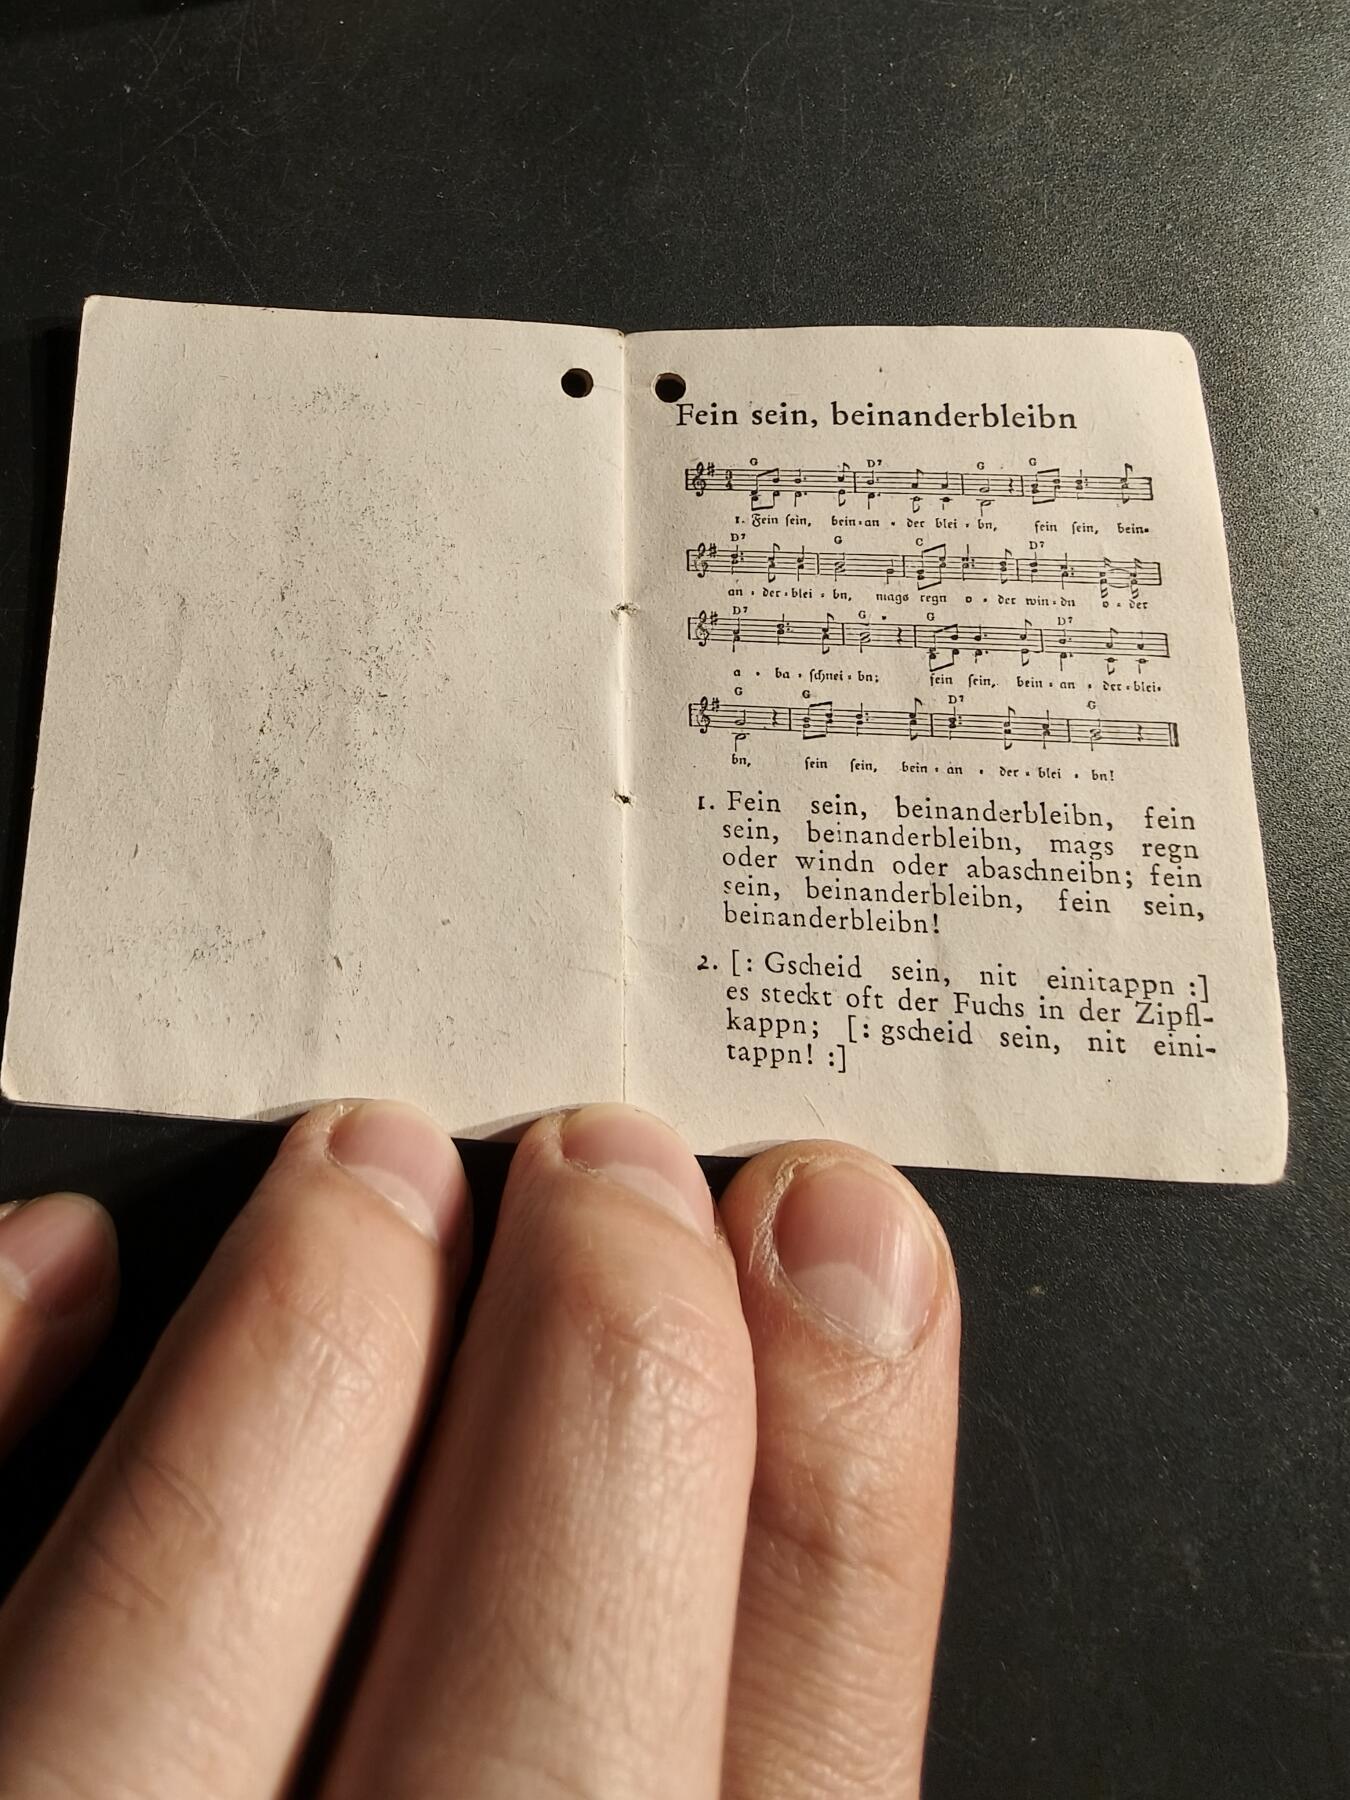 Fein sein, beinanderbleibn
G D⁷ G G
1. Fein sein, bein-an-der blei-bn, fein sein, bein-
D⁷ G C D⁷
an-der-blei-bn, mags regn o-der win-dn o-der
D⁷ G G D⁷
a-ba-schnei-bn; fein sein, bein-an-der-blei-
G G D⁷ G
bn, fein sein, bein-an-der-blei-bn!
1. Fein sein, beinanderbleibn, fein
sein, beinanderbleibn, mags regn
oder windn oder abaschneibn; fein
sein, beinanderbleibn, fein sein,
beinanderbleibn!
2. [: Gscheid sein, nit einitappn :]
es steckt oft der Fuchs in der Zipfl-
kappn; [: gscheid sein, nit eini-
tappn! :]